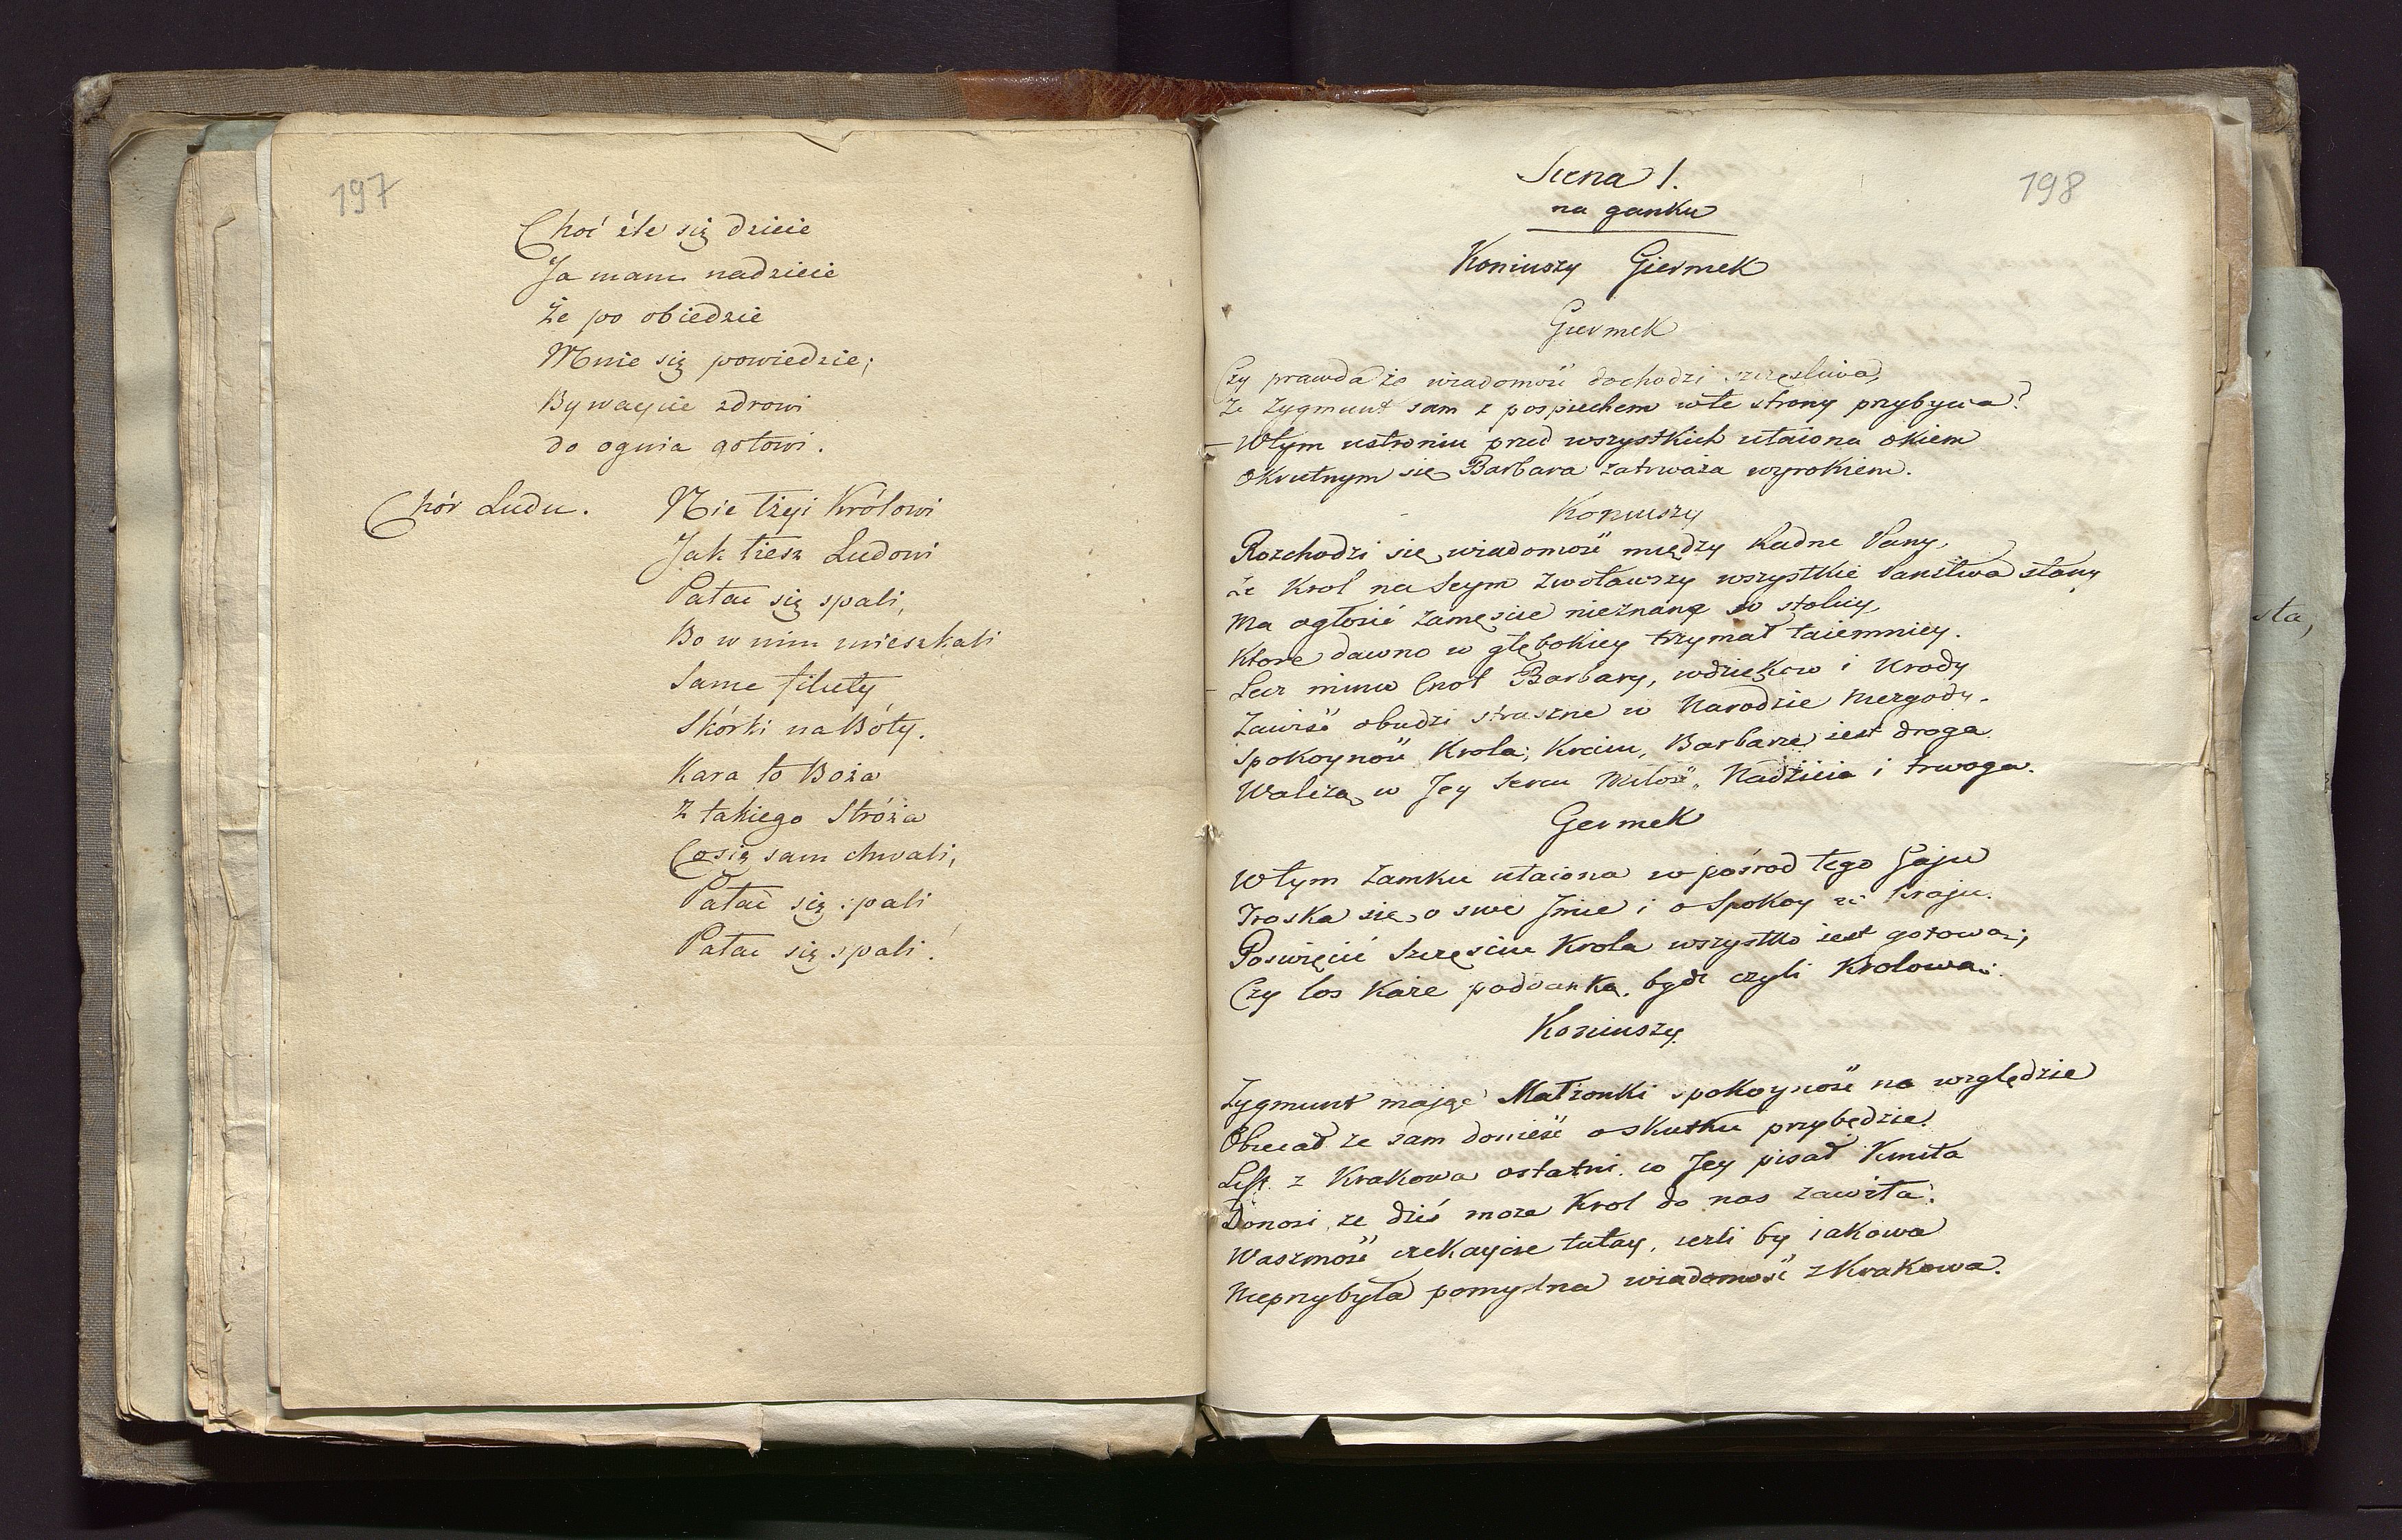 197
Choć źle się dzieie
Ja mam nadzieie
Że po obiedzie
Mnie się powiedzie;
Bywaycie zdrowi
do ognia gotowi.
Chór Ludu. Nie lżyi Królowi
Jak tiesz Ludowi
Pałac się spali,
Bo w nim mieszkali
Same filuty
Skórki na Bóty.
Kara to Boża
z takiego Stróża
Co się sam chwali,
Pałac się spali
Pałac się spali!
198
Scena 1.
na ganku
Koniuszy Giermek
Giermek
Czy prawda że wiadomość dochodzi szczęsliwa,
Że Zygmunt sam z pospiechem w te strony przybywa?
W tym ustroniu przed wszystkich utaiona okiem
Okrutnym się Barbara zatrważa wyrokiem.
Koniuszy
Rozchodzi się wiadomość między Radne Pany,
Że Krol na Seym zwoławszy wszystkie Panstwa stany
Ma ogłosić zamęscie nieznane w stolicy,
Ktore dawno w głębokiey trzymał taiemnicy.
Lecz mimo Cnot Barbary, wdziękow i Urody
Zawisć obudzi straszne w Narodzie Niezgody.
Spokoyność Krola, Kraiu, Barbarze iest droga
Walczą w Jey Sercu Miłość, Nadzieia i trwoga.
Germek
W tym Zamku utaiona w pośrod tego Gaju
Troska się o swe Jmie i o Spokoy Kraju.
Poswięcić Szczęsciu Krola wszystko iest gotowa;
Czy los Każe poddanką bydz czyli Krolowa.
Koniuszy
Zygmunt mając Małżonki spokoyność na względzie
Obiecał ze sam donieść o skutku przybędzie.
List z Krakowa ostatni co Jey pisał Kmita
Donosi ze dziś moze Krol do nas zawita.
Waszmość czekaycie tutay, iezli by iakowa
Nieprzybyła pomyslna wiadomość z Krakowa.
sta,